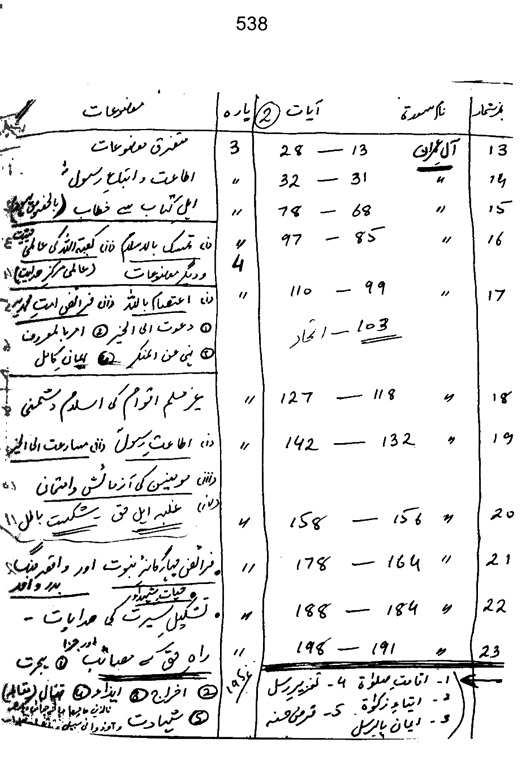 538
نمبر شمار نام سورۃ آیات (2) پارہ موضوعات
13 آل عمران 13 — 28 3 متفرق موضوعات
14 〃 31 — 32 〃 اطاعت و اتباع رسولؐ
15 〃 68 — 78 〃 اہل کتاب سے خطاب
16 〃 85 — 97 〃 تمسک بالاسلام کعبۃ اللہ کی عالمی
4 و دیگر موضوعات (عالمی مرکز ہدایت)
17 〃 99 — 110 〃 اعتصام باللہ فرائض امت
103 — اتحاد ① دعوت الی الخیر ② امر بالمعروف
③ نہی عن المنکر ④ ایمان کامل
18 〃 118 — 127 〃 غیر مسلم اقوام کی اسلام دشمنی
19 〃 132 — 142 〃 اطاعت رسولؐ مسارعت الی الخیر
مومنین کی آزمائش و امتحان
20 〃 156 — 158 〃 غلبہ اہل حق شکست باطل
21 〃 164 — 178 〃 فرائض چہارگانہ نبوت اور واقعہ جنگ
بدر و احد
حیات شہداء
22 〃 184 — 188 〃 تشکیل سیرت کی ہدایات -
23 〃 191 — 198 〃 راہ حق کے مصائب اور جزا ① ہجرت
195 ② اخراج ③ ایذاء ④ قتال
⑤ شہادت
1- اقامت صلوٰۃ 4- تعزیر رسل
2- ایتاء زکوٰۃ 5- قرض حسنہ
3- ایمان بالرسل